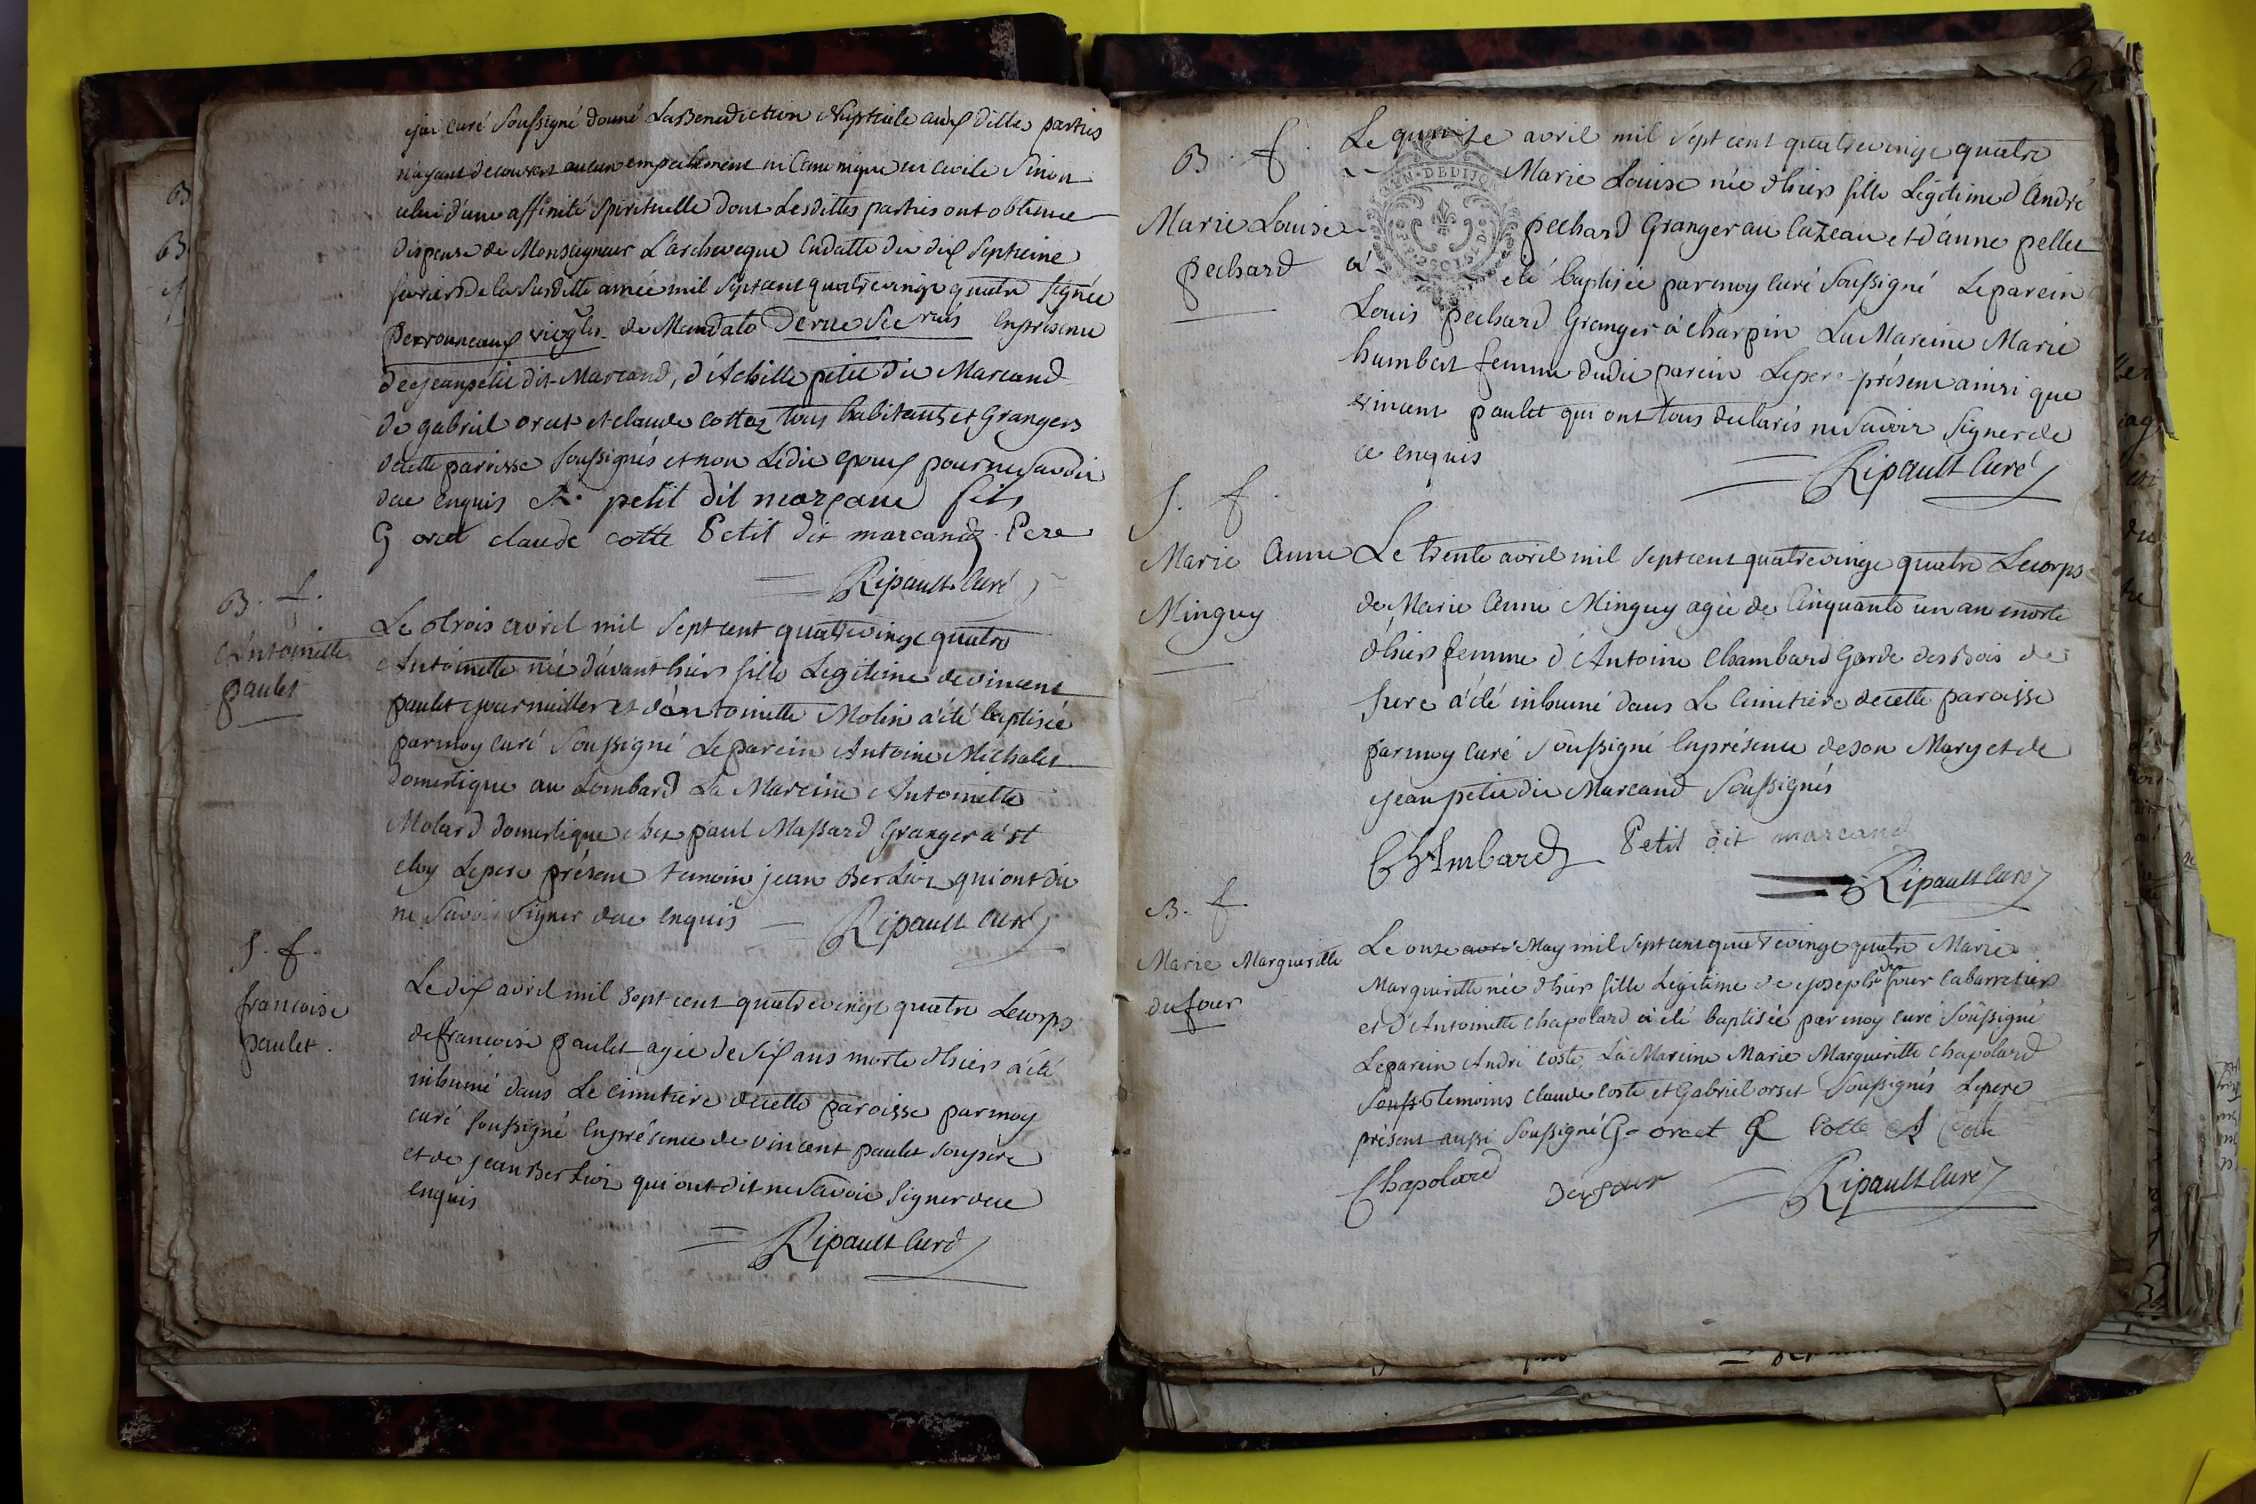 j'ai curé soussigné donné La Benediction Nuptiale aux dittes parties
n'ayant decouvert aucun empechement ni Canonique ni civile Sinon
celui d'une affinité Spirituelle dont Lesdittes parties ont obtenue
dispense de Monseigneur L'archeveque Endatte du dix Septieme
fevrier de la Susditte année mil Sept cent quatre vingt quatre Signée
de Mandato Enprésence
de jean petit dit Marcand, d'Achille petit dit Marcand
de gabriel orcet et claude cottez tous habitants et Grangers
decette paroisse Soussignés et non Ledit epoux pour ne Savoir
dece enquis A. petit dit marcand fils
G orcet claude cotte Petit dit marcand Pere
Ripault Curé
B. f.
Antoinette
paulet
Le trois avril mil Sept cent quatrevingt quatre
Antoinette née d'avant hier fille Legitime devincent
paulet journaillier et d'antoinette Molin a été baptisée
par moy Curé Soussigné Leparein Antoine Michalet
domestique au Lombard La Mareine Antoinette
Molard domestique chez paul Massard Granger a St
eloy Lepere présent temoin jean Berlioz qui ont dit
ne Savoir Signer dece enquis Ripault Curé
S. f.
francoise
paulet.
Le dix avril mil Sept cent quatrevingt quatre Lecorps
de francoise paulet agée de Six ans morte d'hier a été
inhumé dans Le Cimetiere decette paroisse parmoy
curé Soussigné Enprésence de vincent paulet sonpére
et de jean Berlioz qui ont dit ne Savoir Signer dece
enquis
Ripault Curé
B. f.
Marie Louise
pechard
Le quinze avril mil Sept cent quatrevingt quatre
Marie Louise née d'hier fille Légitime d'André
pechard Granger au Cazeau et d'anne pellet
a été baptisée parmoy Curé Soussigné Leparein
Louis pechard Granger à charpin La Mareine Marie
humbert femme dudit parein Lepere présent ainsi que
vincent paulet qui ont tous declarés ne Savoir Signer de
ce enquis
Ripault Curé
S. f.
Marie Anne
Minguy
Le trente avril mil Sept cent quatrevingt quatre Lecorps
de Marie Anne Minguy agée de Cinquante un an morte
d'hier femme d'Antoine Chambard Garde des Bois de
a été inhumé dans Le Cimetiere decette paroisse
parmoy Curé Soussigné Enprésence deson Mary et de
jean petit dit Marcand Soussignés
Chambard Petit dit marcand
Ripault Curé
B. f.
Marie Margueritte
dufour
Le onze avril May mil Sept cent quatrevingt quatre Marie
Margueritte née d'hier fille Légitime de joseph du four Cabarretier
et D'Antoinette Chapolard a été baptisée par moy curé Soussigné
Leparein André Coste La Mareine Marie Margueritte Chapolard
Souss temoins Claude Coste et Gabriel orset Soussignés Lepere
présent aussi Soussigné G orcet C Cotte A Cotte
Chapolard dufour Ripault Curé